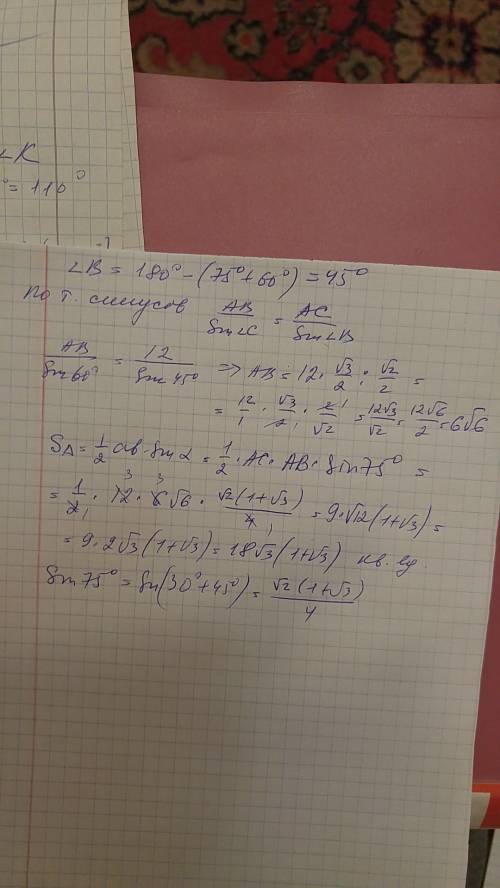 ∠K
° = 110°
∠B = 180° - (75° + 60°) = 45°
По т. синусов AB/Sin∠C = AC/Sin∠B
AB/Sin60° = 12/Sin45° => AB = 12 · √3/2 : √2/2 =
= 12/1 · √3/2 · 2/√2 = 12√3/√2 = 12√6/2 = 6√6
S△ = 1/2 ab · Sin α = 1/2 · AC · AB · Sin 75° =
= 1/2 · 12 · 6√6 · √2(1+√3)/4 = 9 · √12(1+√3) =
= 9 · 2√3(1+√3) = 18√3(1+√3) кв. ед.
Sin 75° = Sin(30° + 45°) = √2(1+√3)/4